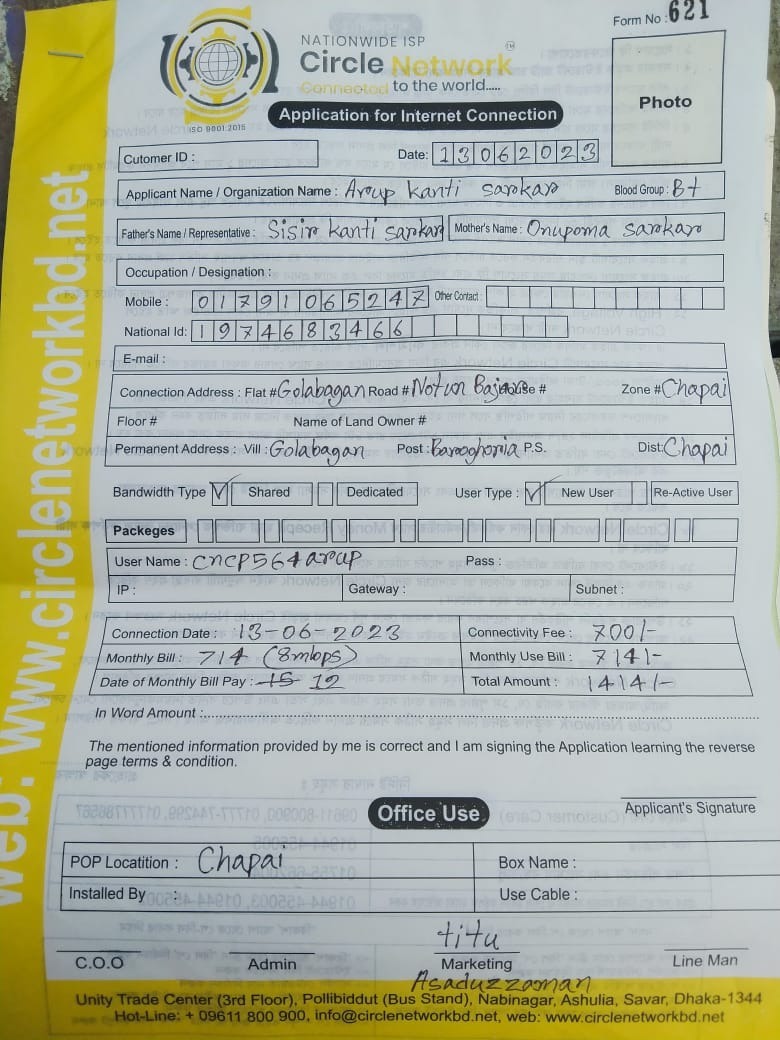 Form No : 621
NATIONWIDE ISP
Circle Network TM
Connected to the world.....
ISO 9001:2015
Application for Internet Connection
Photo
web: www.circlenetworkbd.net
Cutomer ID :
Date: 13062023
Applicant Name / Organization Name : Arup kanti sarokaro Blood Group : B+
Father's Name / Representative : Sisir kanti sarokaro Mother's Name : Onupoma sarokaro
Occupation / Designation :
Mobile : 01791065247 Other Contact :
National Id: 1974683466
E-mail :
Connection Address : Flat # Golabagan Road # Notun Bajar House # Zone # Chapai
Floor # Name of Land Owner #
Permanent Address : Vill : Golabagan Post : Barooghoria P.S. Dist: Chapai
Bandwidth Type ✓ Shared Dedicated User Type : ✓ New User Re-Active User
Packeges
User Name : cncp564arup Pass :
IP : Gateway : Subnet :
Connection Date : 13-06-2023 Connectivity Fee : 700/-
Monthly Bill : 714 (8mbps) Monthly Use Bill : 714/-
Date of Monthly Bill Pay : 15 12 Total Amount : 1414/-
In Word Amount :
The mentioned information provided by me is correct and I am signing the Application learning the reverse
page terms & condition.
Applicant's Signature
Office Use
POP Locatition : Chapai Box Name :
Installed By : Use Cable :
titu
C.O.O Admin Marketing Line Man
Asaduzzaman
Unity Trade Center (3rd Floor), Pollibiddut (Bus Stand), Nabinagar, Ashulia, Savar, Dhaka-1344
Hot-Line: + 09611 800 900, info@circlenetworkbd.net, web: www.circlenetworkbd.net